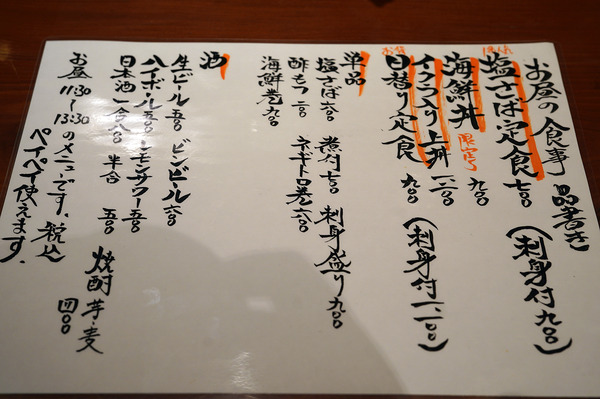 お昼の食事 品書き
塩さば定食 七〇〇 (刺身付 九〇〇)
海鮮丼 限定 九〇〇
イクラ入り上丼 一二〇〇
日替り定食 九〇〇 (刺身付 一一〇〇)
単品
塩さば 六〇〇 煮付 七〇〇 刺身盛り 九〇〇
酢もつ 二〇〇 ネギトロ巻 六〇〇
海鮮巻 九〇〇
酒
生ビール 五〇〇 ビンビール 六〇〇
ハイボール 五〇〇 レモンサワー 五〇〇
日本酒 一合 八〇〇 半合 五〇〇
焼酎 芋・麦 四〇〇
お昼 11:30〜13:30のメニューです。税込
ペイペイ使えます。